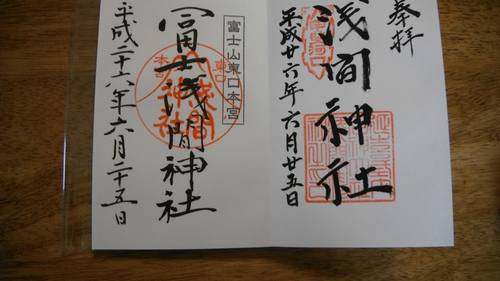 奉拝
浅間神社
平成廿六年六月廿五日
富士山東口本宮
冨士浅間神社
東口
本宮
平成二十六年六月二十五日